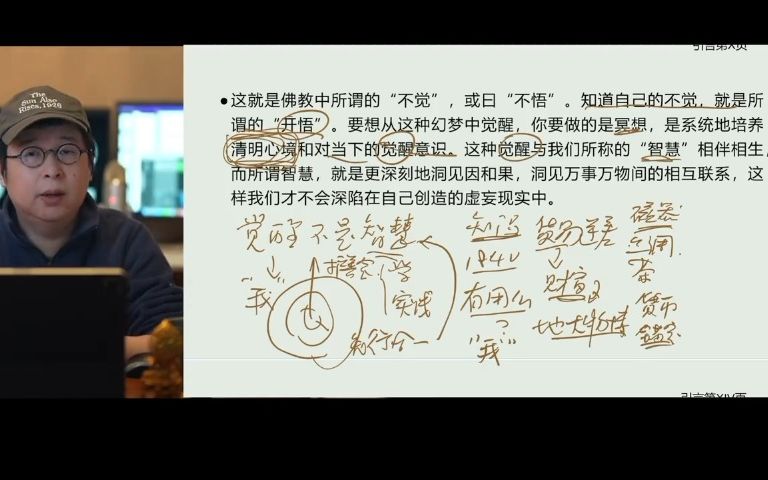 The
Sun Also
Rises, 1926
引言第X页
●这就是佛教中所谓的“不觉”，或曰“不悟”。知道自己的不觉，就是所
谓的“开悟”。要想从这种幻梦中觉醒，你要做的是冥想，是系统地培养
清明心境和对当下的觉醒意识。这种觉醒与我们所称的“智慧”相伴相生，
而所谓智慧，就是更深刻地洞见因和果，洞见万事万物间的相互联系，这
样我们才不会深陷在自己创造的虚妄现实中。
觉的不是智慧
“我”
学
实践
知行合一
知识
1840
有用么
?
“我”
货易逆差
地大物博
瓷器
丝绸
茶
货币
引言第XIV页